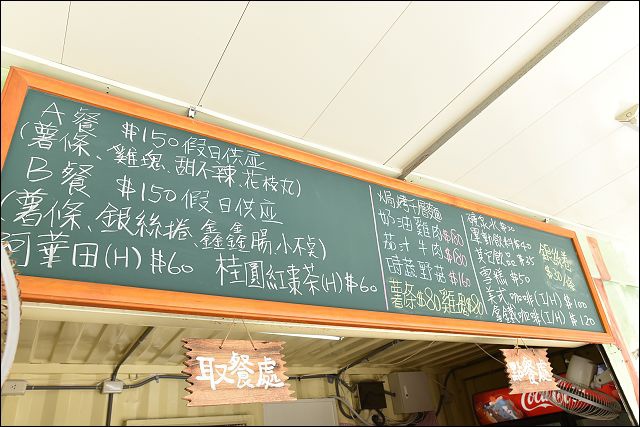 A餐 $150 假日供应
(薯條、雞塊、甜不辣、花枝丸)
B餐 $150 假日供应
(薯條、銀絲捲、鑫鑫腸、小不點)
阿華田(H) $60 桂圓紅棗茶(H) $60
焗烤千層麵
奶油雞肉 $180
茄汁牛肉 $180
時蔬野菇 $160
薯條 $80 雞塊 $80
礦泉水 $20
運動飲料 $40
其它飲品 $25
雪糕 $50
美式咖啡(I,H) $100
拿鐵咖啡(I,H) $120
銀絲卷
$30/條
取餐處
點餐處
Coca-Cola